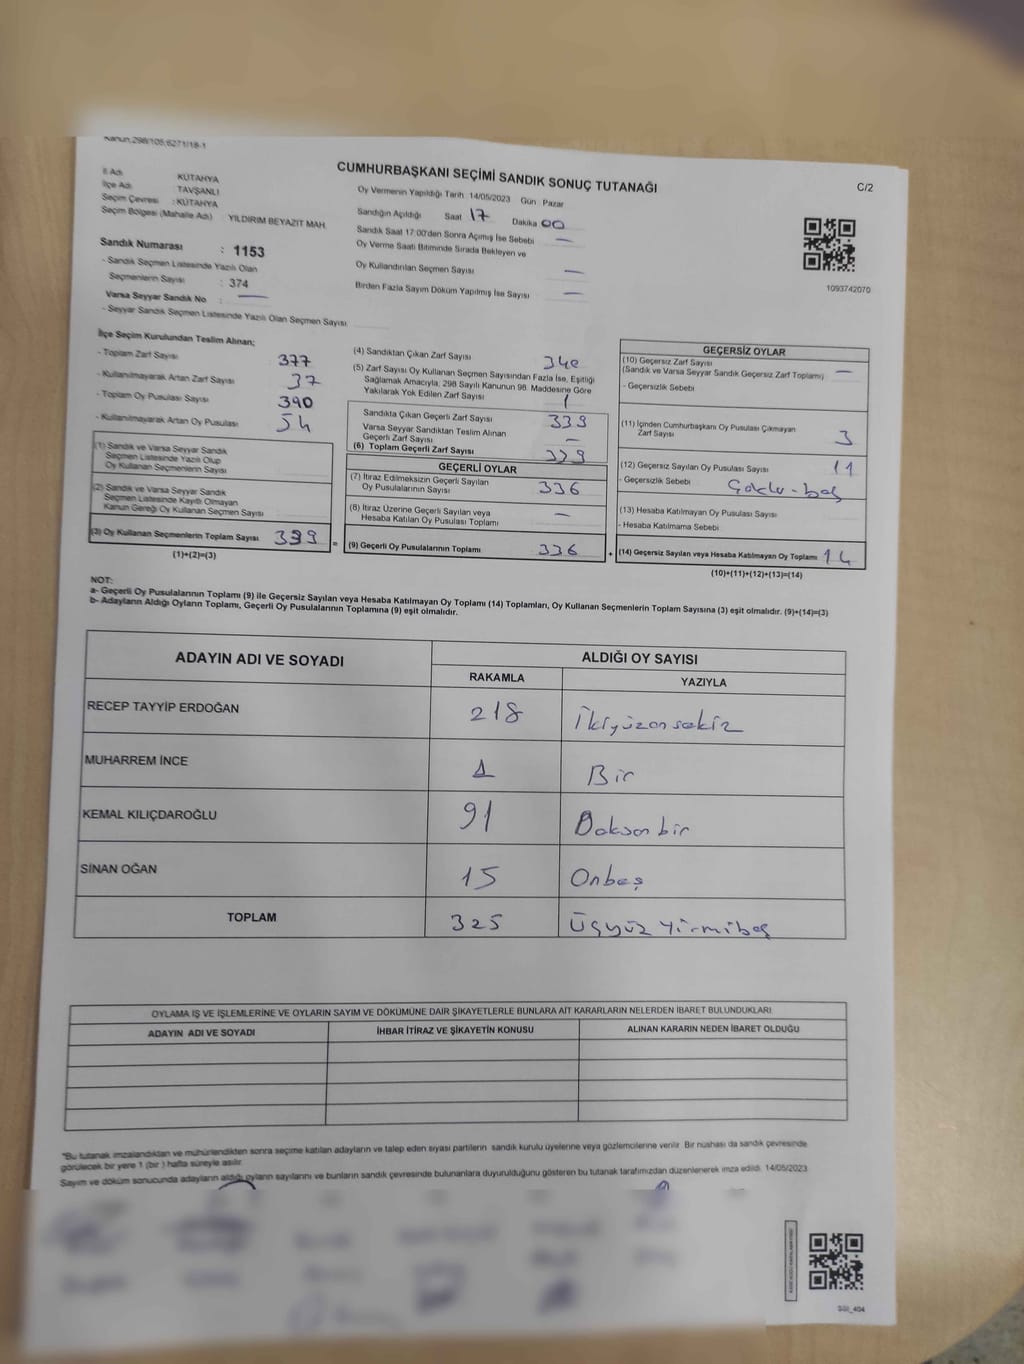 Kanun;298/105;6271/18-1
CUMHURBAŞKANI SEÇİMİ SANDIK SONUÇ TUTANAĞI
C/2
İl Adı : KÜTAHYA
İlçe Adı : TAVŞANLI
Seçim Çevresi : KÜTAHYA
Seçim Bölgesi (Mahalle Adı) YILDIRIM BEYAZIT MAH.
Sandık Numarası : 1153
- Sandık Seçmen Listesinde Yazılı Olan
Seçmenlerin Sayısı : 374
Varsa Seyyar Sandık No : —
- Seyyar Sandık Seçmen Listesinde Yazılı Olan Seçmen Sayısı
Oy Vermenin Yapıldığı Tarih 14/05/2023 Gün Pazar
Sandığın Açıldığı Saat 17 Dakika 00
Sandık Saat 17:00'den Sonra Açımış İse Sebebi —
Oy Verme Saati Bitiminde Sırada Bekleyen ve
Oy Kullandırılan Seçmen Sayısı —
Birden Fazla Sayım Döküm Yapılmış İse Sayısı —
1093742070
İlçe Seçim Kurulundan Teslim Alınan;
- Toplam Zarf Sayısı 377
- Kullanılmayarak Artan Zarf Sayısı 37
- Toplam Oy Pusulası Sayısı 390
- Kullanılmayarak Artan Oy Pusulası 54
(1) Sandık ve Varsa Seyyar Sandık
Seçmen Listesinde Yazılı Olup
Oy Kullanan Seçmenlerin Sayısı
(2) Sandık ve Varsa Seyyar Sandık
Seçmen Listesinde Kayıtlı Olmayan
Kanun Gereği Oy Kullanan Seçmen Sayısı
(3) Oy Kullanan Seçmenlerin Toplam Sayısı 339 =
(1)+(2)=(3)
(4) Sandıktan Çıkan Zarf Sayısı 340
(5) Zarf Sayısı Oy Kullanan Seçmen Sayısından Fazla İse, Eşitliği
Sağlamak Amacıyla, 298 Sayılı Kanunun 98. Maddesine Göre
Yakılarak Yok Edilen Zarf Sayısı 1
Sandıkta Çıkan Geçerli Zarf Sayısı 339
Varsa Seyyar Sandıktan Teslim Alınan
Geçerli Zarf Sayısı —
(6) Toplam Geçerli Zarf Sayısı 339
GEÇERLİ OYLAR
(7) İtiraz Edilmeksizin Geçerli Sayılan
Oy Pusulalarının Sayısı 336
(8) İtiraz Üzerine Geçerli Sayılan veya
Hesaba Katılan Oy Pusulası Toplamı —
(9) Geçerli Oy Pusulalarının Toplamı 336 +
GEÇERSİZ OYLAR
(10) Geçersiz Zarf Sayısı
(Sandık ve Varsa Seyyar Sandık Geçersiz Zarf Toplamı) —
- Geçersizlik Sebebi
(11) İçinden Cumhurbaşkanı Oy Pusulası Çıkmayan
Zarf Sayısı 3
(12) Geçersiz Sayılan Oy Pusulası Sayısı 11
- Geçersizlik Sebebi
(13) Hesaba Katılmayan Oy Pusulası Sayısı
- Hesaba Katılmama Sebebi
(14) Geçersiz Sayılan veya Hesaba Katılmayan Oy Toplamı 14
(10)+(11)+(12)+(13)=(14)
NOT:
a- Geçerli Oy Pusulalarının Toplamı (9) ile Geçersiz Sayılan veya Hesaba Katılmayan Oy Toplamı (14) Toplamları, Oy Kullanan Seçmenlerin Toplam Sayısına (3) eşit olmalıdır. (9)+(14)=(3)
b- Adayların Aldığı Oyların Toplamı, Geçerli Oy Pusulalarının Toplamına (9) eşit olmalıdır.
ADAYIN ADI VE SOYADI ALDIĞI OY SAYISI
RAKAMLA YAZIYLA
RECEP TAYYİP ERDOĞAN 218 İkiyüzonsekiz
MUHARREM İNCE 1 Bir
KEMAL KILIÇDAROĞLU 91 Doksanbir
SİNAN OĞAN 15 Onbeş
TOPLAM 325 Üçyüz Yirmibeş
OYLAMA İŞ VE İŞLEMLERİNE VE OYLARIN SAYIM VE DÖKÜMÜNE DAİR ŞİKAYETLERLE BUNLARA AİT KARARLARIN NELERDEN İBARET BULUNDUKLARI
ADAYIN ADI VE SOYADI İHBAR İTİRAZ VE ŞİKAYETİN KONUSU ALINAN KARARIN NEDEN İBARET OLDUĞU
"Bu tutanak imzalandıktan ve mühürlendikten sonra seçime katılan adayların ve talep eden siyasi partilerin sandık kurulu üyelerine veya gözlemcilerine verilir. Bir nüshası da sandık çevresinde
görülecek bir yere 1 (bir ) hafta süreyle asılır.
Sayım ve döküm sonucunda adayların aldığı oyların sayılarını ve bunların sandık çevresinde bulunanlara duyurulduğunu gösteren bu tutanak tarafımızdan düzenlenerek imza edildi. 14/05/2023